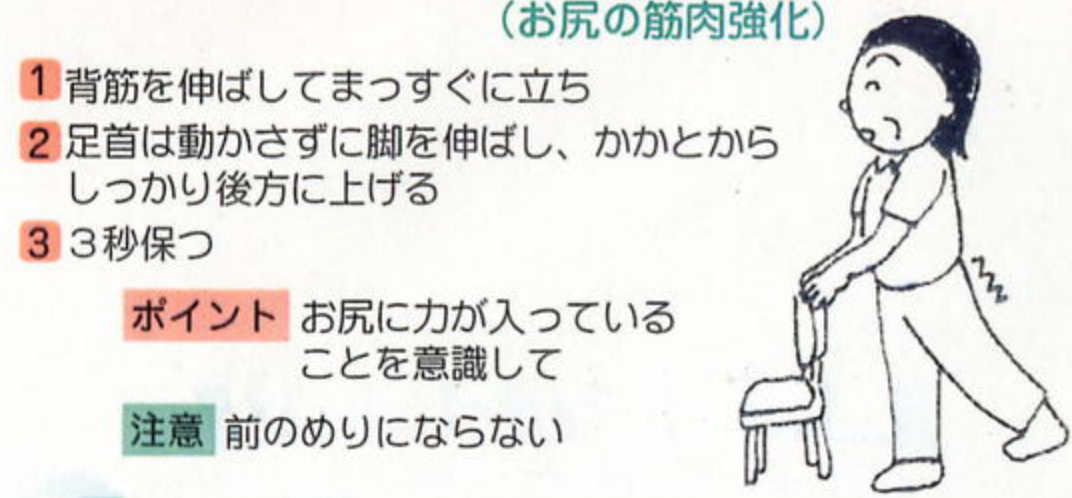 （お尻の筋肉強化）
1 背筋を伸ばしてまっすぐに立ち
2 足首は動かさずに脚を伸ばし、かかとから
しっかり後方に上げる
3 3秒保つ
ポイント お尻に力が入っている
ことを意識して
注意 前のめりにならない